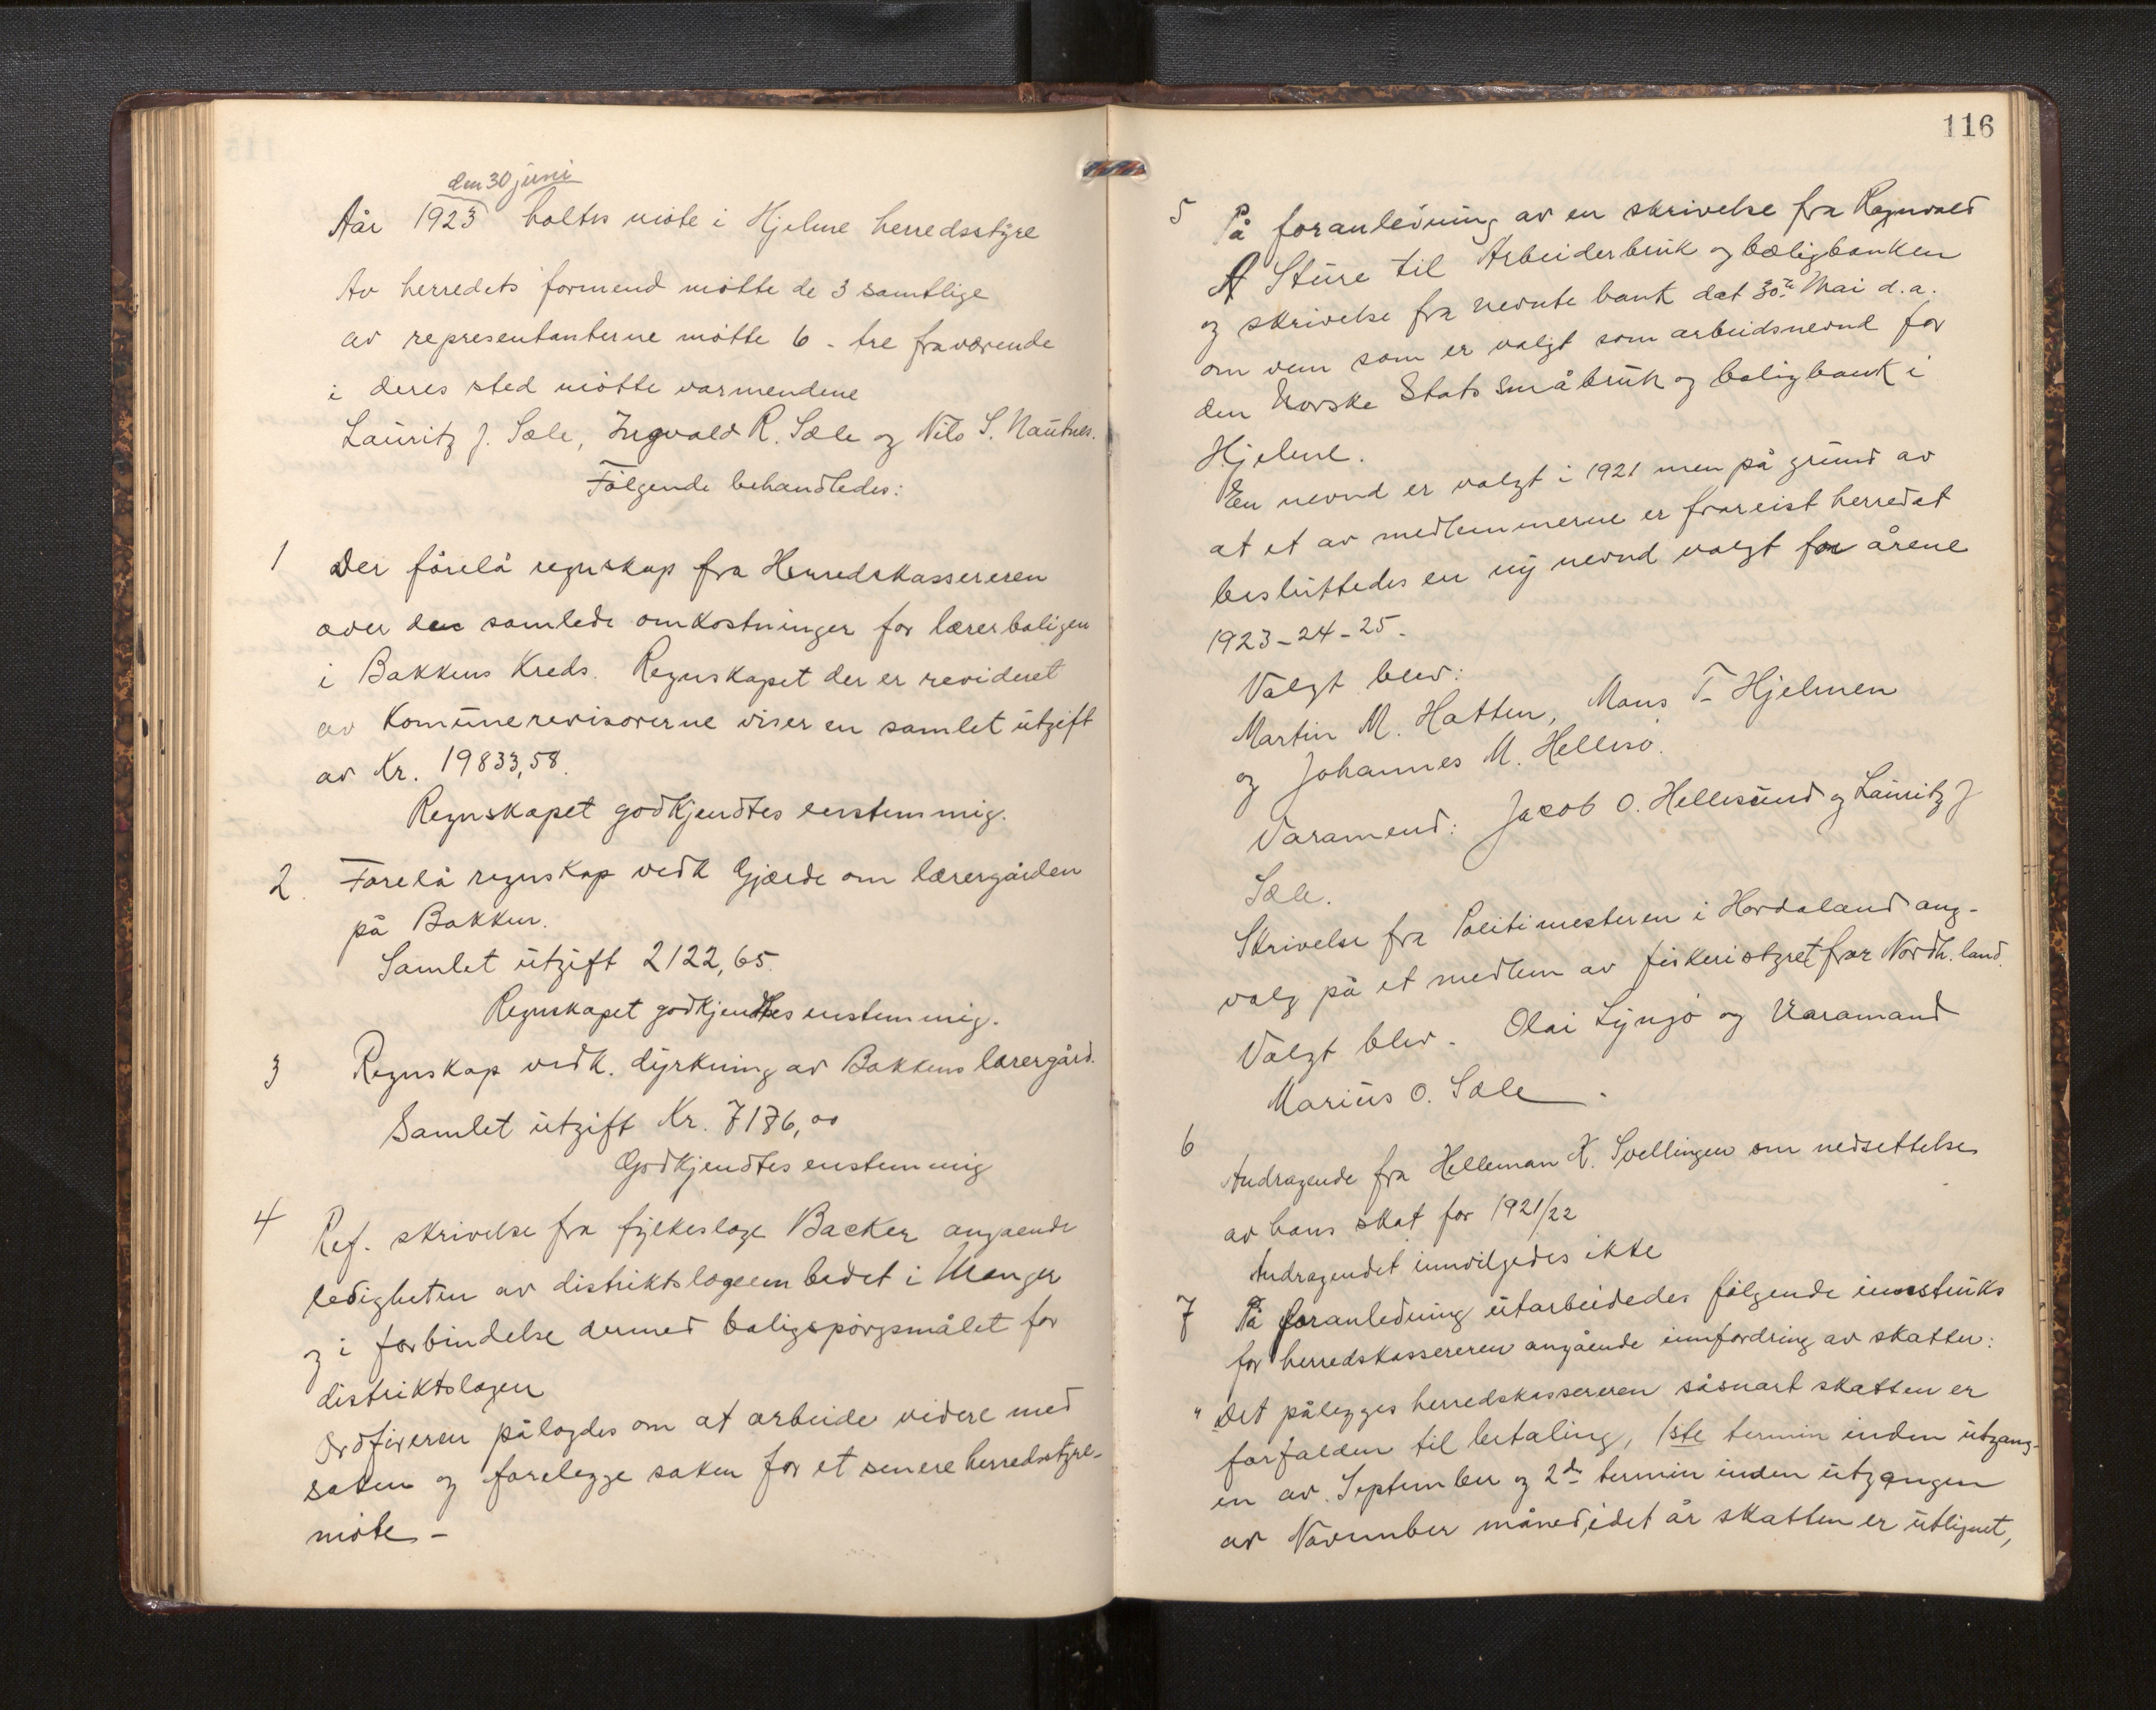 den 30 juni
Aår 1923 holtes möte i Hjelme herredsstyre
Av herredets formend mötte de 3 samtlige
av representanterne mötte 6 - tre fraværende
i deres sted mötte varmendene
Lauritz J. Sæle, Ingvald R. Sæle og Nils S. Nautnes.
Fölgende behandledes:
1 Der förelå regnskap fra Herredskassereren
over den samlede omkostninger for lærerboligen
i Bakkens Kreds. Regnskapet der er revideret
av Komunerevisorerne viser en samlet utgift
av Kr. 19833,58.
Regnskapet godkjendtes enstemmig.
2. Forelå regnskap vedk Gjærde om lærergården
på Bakken.
Samlet utgift 2122,65.
Regnskapet godkjendtes enstemmig.
3 Regnskap vedk. dyrkning av Bakkens lærergård.
Samlet utgift Kr. 7176,00
Godkjendtes enstemmig
4 Ref. skrivelse fra fylkeslæge Backer angaende
ledigheten av distriktslægeembedet i Manger
og i forbindelse dermed boligspörgsmålet for
distriktslægen
Ordföreren pålagdes om at arbeide videre med
saken og forelegge saken for et senere herredsstyre-
möte -
116
5 På foranledning av en skrivelse fra Ragnvald
A Sture til Arbeiderbruk og boligbanken
og skrivelse fra nevnte bank dat 30te Mai d.a.
om vem som er valgt som arbeidsnevnd for
den Norske Stats småbruk og boligbank i
Hjelme.
En nevnd er valgt i 1921 men på grund av
at et av medlemmerne er frareist herredet
besluttedes en ny nevnd valgt for årene
1923-24-25.
Valgt blev:
Martin M. Hatten, Mons T. Hjelmen
og Johannes M. Hellisö.
Varamend: Jacob O. Hellesund og Lauritz J
Sæle.
Skrivelse fra Politimesteren i Hordaland ang-
valg på et medlem av fiskeristyret for Nordh.land.
Valgt blev. Olai Lyngö og Varamand
Marius O. Sæle.
6 Andragende fra Helleman K. Svellingen om nedsettelse
av hans skat for 1921/22
Andragendet innvilgedes ikke
7 På foranledning utarbeidedes fölgende innstruks
for herredskassereren angående innfordring av skatter:
" Det pålegges herredskassereren såsnart skatten er
forfalden til betaling, 1ste termin inden utgang-
en av September og 2den termin inden utgangen
av November måned, idet år skatten er utlignet,